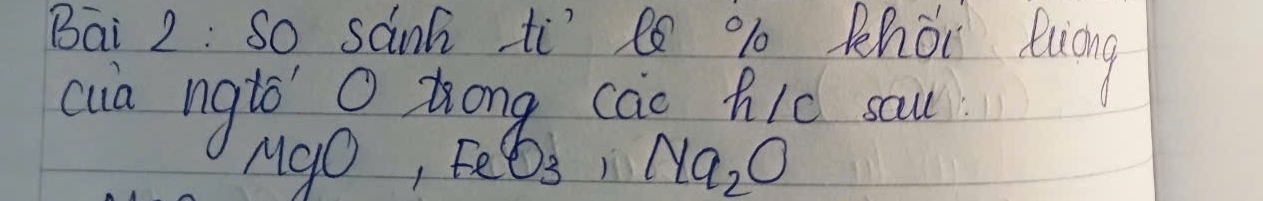 Bài 2: So sánh tỉ lệ % khối lượng
của ngtố O trong các h/c sau:
MgO, FeO₃, Na₂O